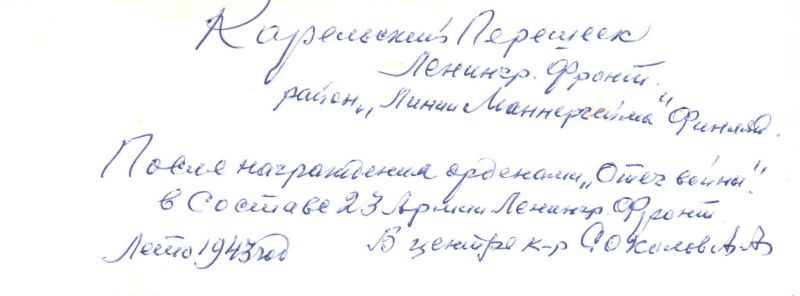 Карельский Перешеек
Ленингр. Фронт.
район „Линии Маннергейма" Финлянд.
После награждения орденами „Отеч войны".
в Составе 23 Армии Ленингр. Фронт
Лето 1943 год В центре к-р Соколов А.А